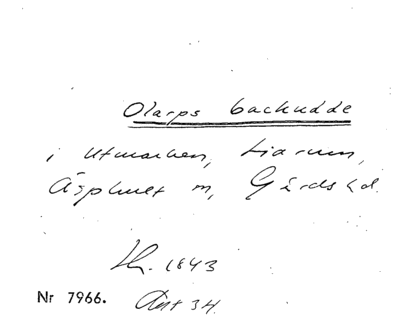 Olarps backudde
i Utmarken, Liarum,
Äsphult sn, Gärds hd.
Lh. 1843
Nr 7966. Akt 34.